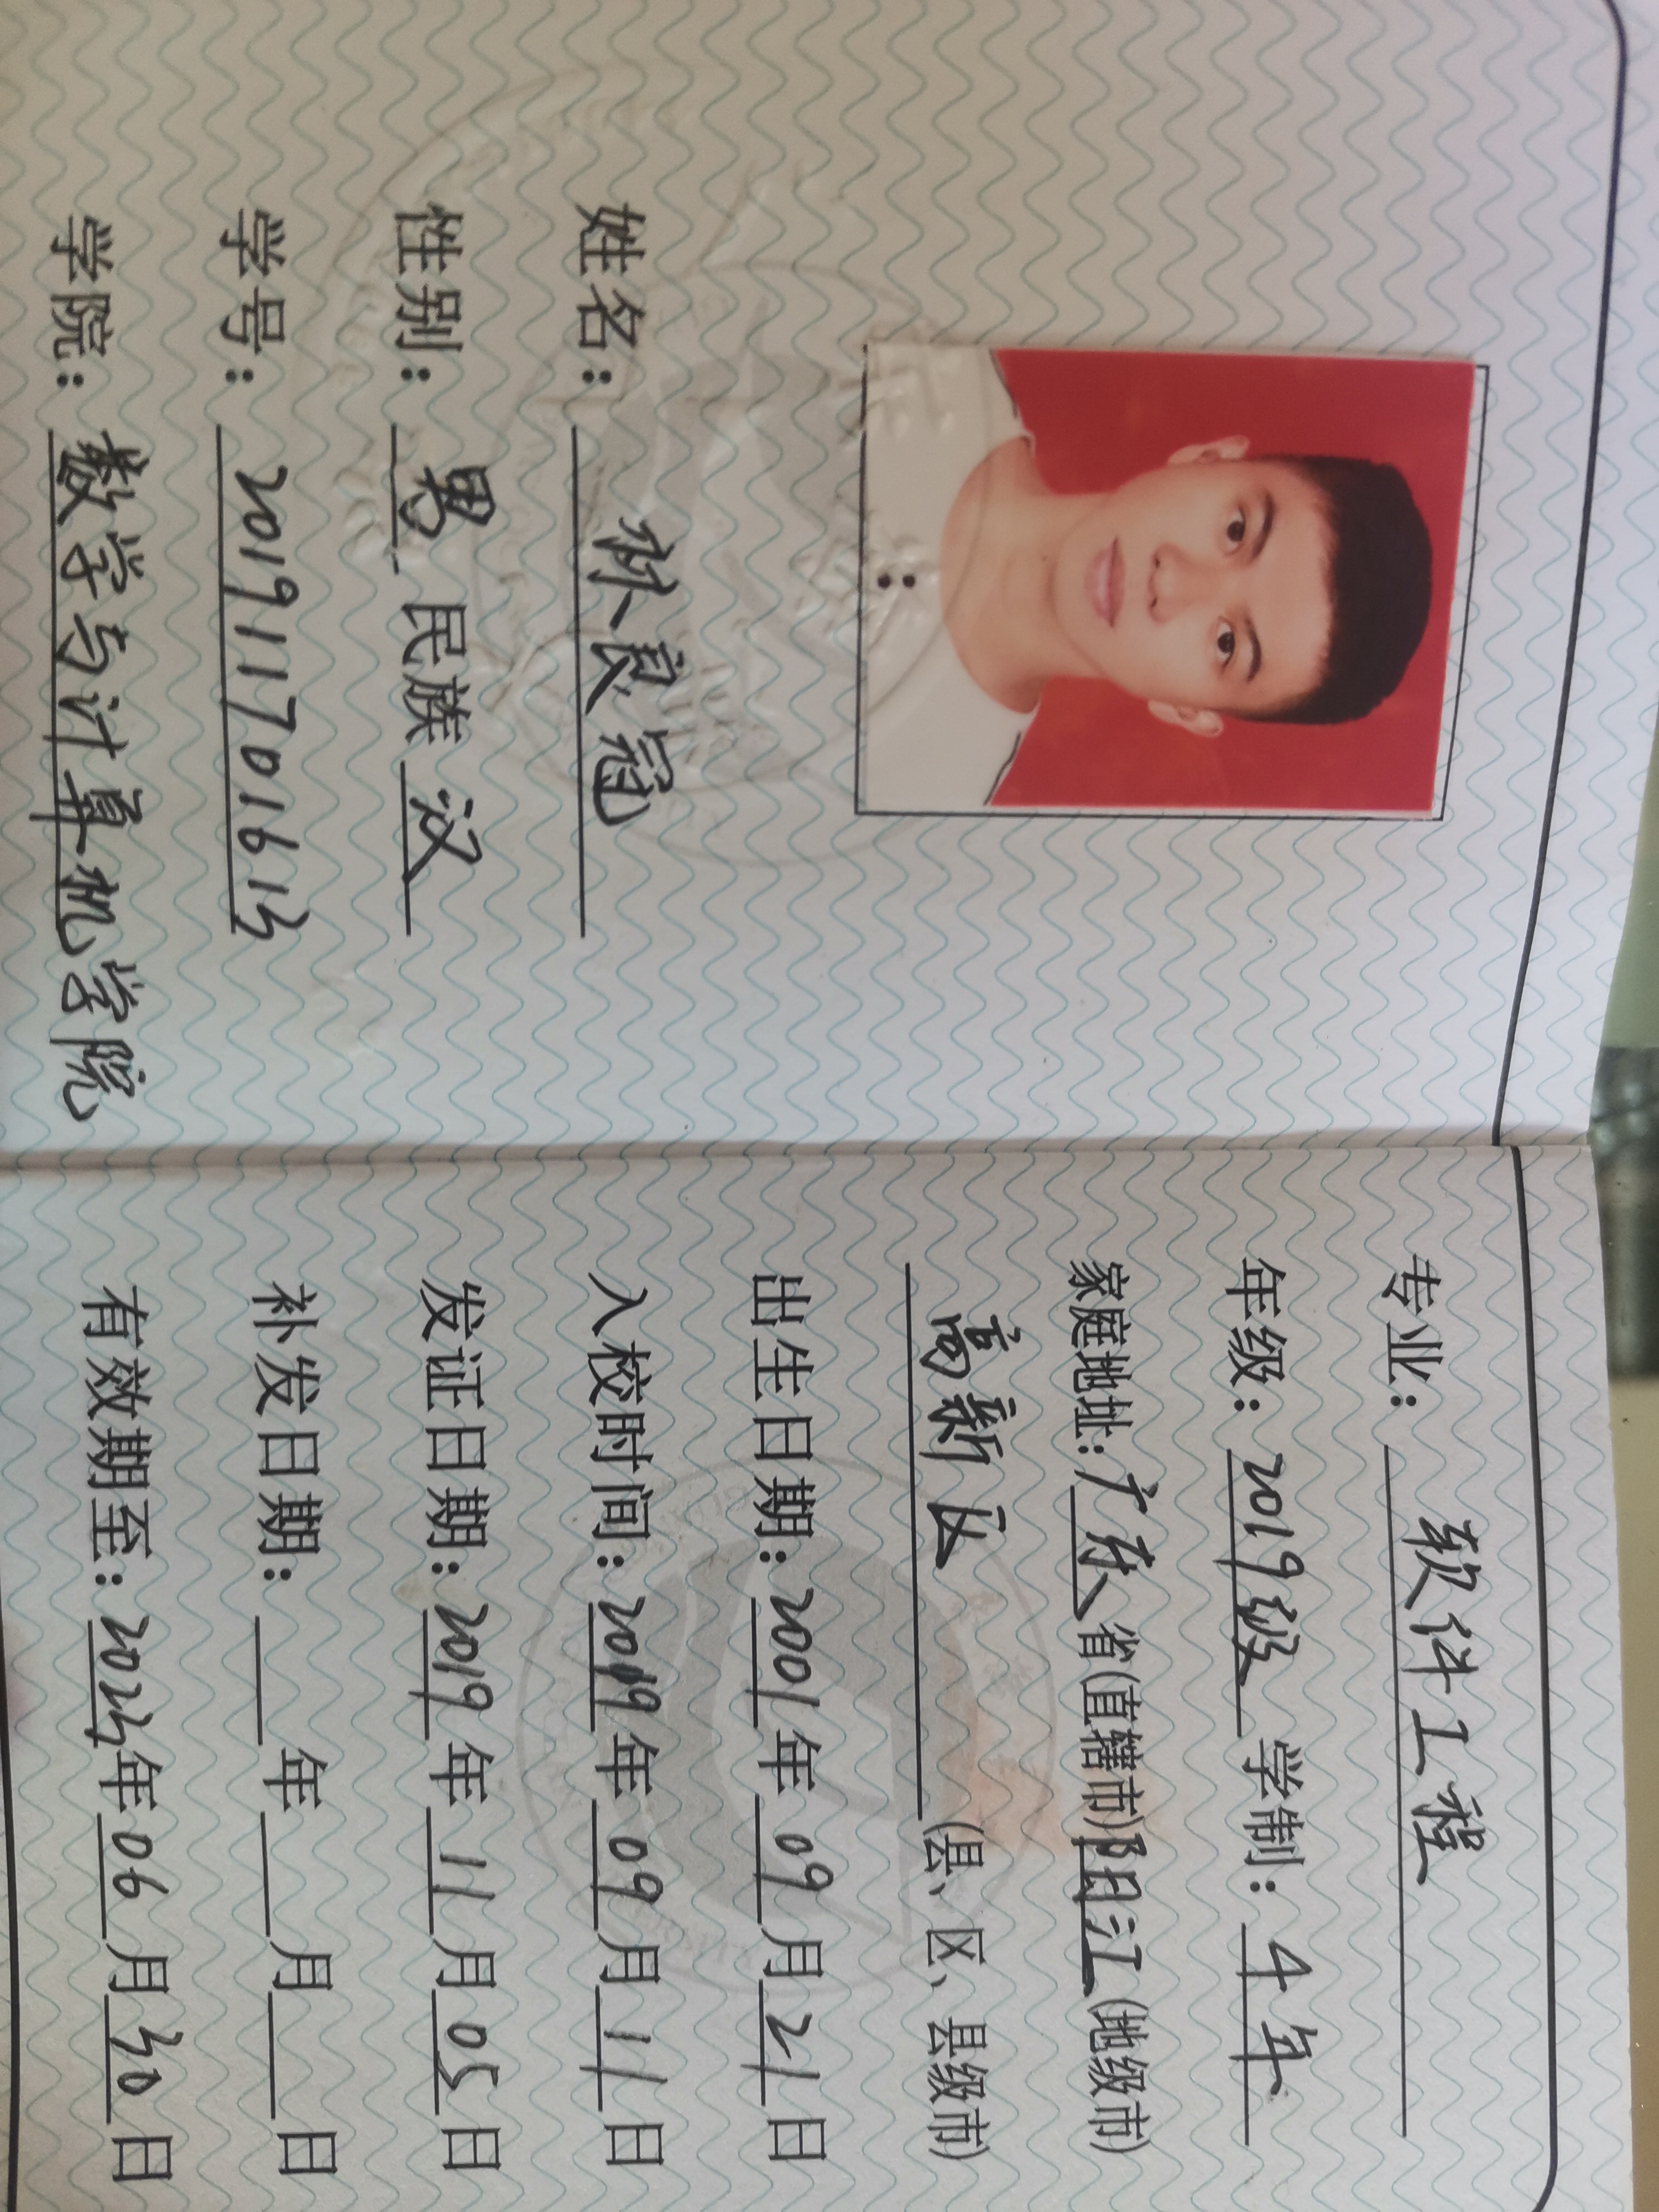 姓名：林良冠
性别：男 民族 汉
学号：201911701613
学院：数学与计算机学院
专业：软件工程
年级：2019级 学制：4年
家庭地址：广东省(直辖市)阳江(地级市)
高新区(县、区、县级市)
出生日期：2001年09月21日
入校时间：2019年09月11日
发证日期：2019年11月05日
补发日期：年月日
有效期至：2023年06月30日